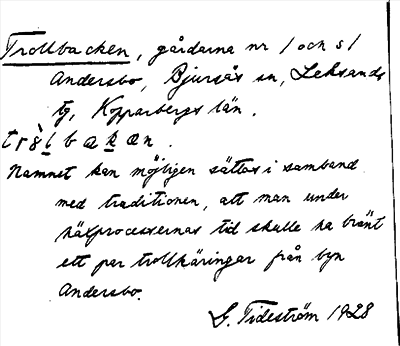 Trollbacken, gårdarna nr 1 och s1
Andersbo, Bjursås sn, Leksands
tg, Kopparbergs län.
Namnet kan möjligen sättas i samband
med traditionen, att man under
häxprocessernas tid skulle ha bränt
ett par trollkäringar från byn
Andersbo.
G. Tideström 1928